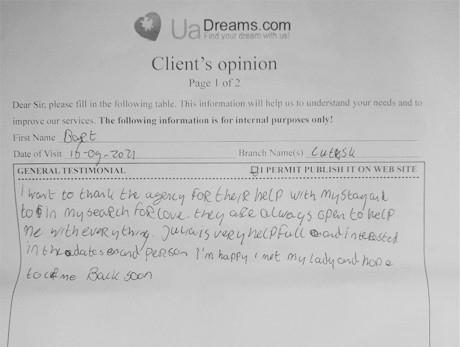 UaDreams.com
Find your dream with us!
Client's opinion
Page 1 of 2
Dear Sir, please fill in the following table. This information will help us to understand your needs and to
improve our services. The following information is for internal purposes only!
First Name Bart
Date of Visit 16-09-2021 Branch Name(s) Lutsk
GENERAL TESTIMONIAL I PERMIT PUBLISH IT ON WEB SITE
I want to thank the agency for their help with my stay and
to in my search for love. they are always open to help
me with everything. Julia is very helpfull and interested
in the dates and person I'm happy i met my lady and hope
to come Back soon